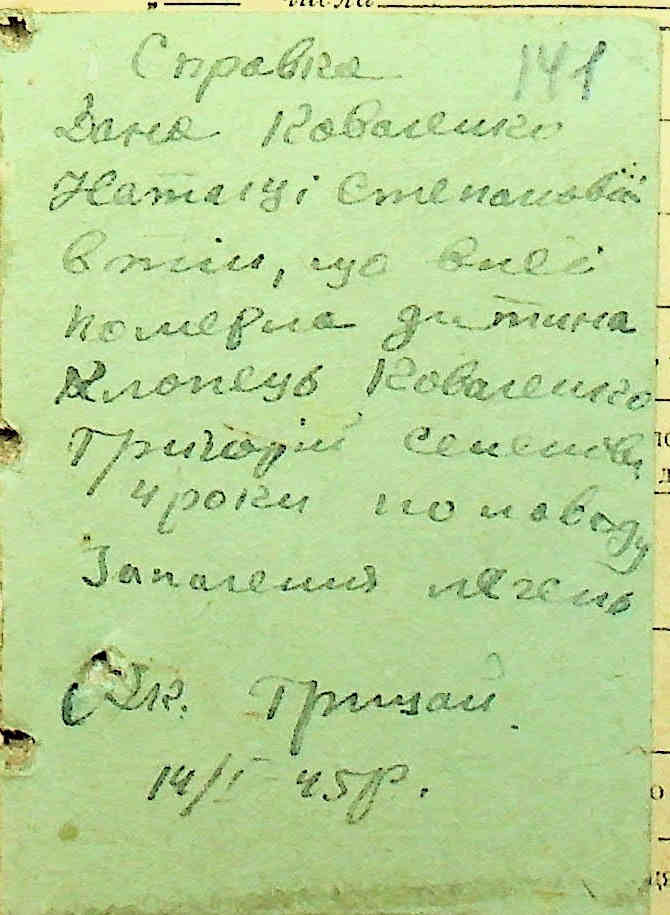 Справка 141
Дана Коваленко
Наталці Степановій
в тім, що в неї
померла дитина
Хлопець Коваленко
Григорій Семенов.
4 роки по поводу
Запалення легень
Лік. Грицай
14/I 45р.